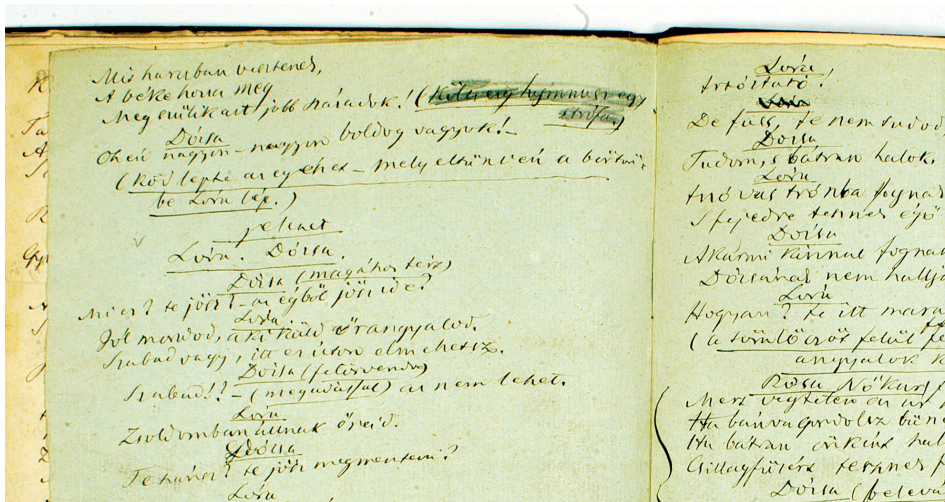 Mis harczban vesztenek,
A béke hona még
Megenyhitkait jobb századok! (Költsey hymnusz egy
strófa)
Dózsa
Oh én nagyon – nagyon boldog vagyok! –
(Köd lepte az egészet – mely eltűnvén a börtön-
be Lóra lép.)
jelenet
Lóra. Dózsa.
Dózsa (magához térve)
Mi ez? te jösz? – az égből jösz ide?
Lóra.
Jól mondod, a ki küld őrangyalod.
Szabad vagy, itt ez úton elmehetsz.
Dózsa (felörvendve)
Szabad!! – (megadással) az nem lehet.
Lóra
Zsoldomban állnak őreid.
Dózsa
Te hános? te jösz megmenteni?
Lóra
Lóra
Irtóztató!
Lóra
De fuss, te nem tudod
Dózsa
Tudom, s bátran halok.
Lóra
Izzó vas trónba fognak
S fejedre tesznek égő
Dózsa
Akármi kinnal fognak
Dózsának nem hallja
Lóra
Hogyan? te itt mara
(a tömlöczöt felül fe
angyalok k
Rózsa Nőkarj
Mert végtelen az úr
Ha bánva gondolsz bűne
Ha bátran önként hal
Csillagfüzért tesznek f
Dózsa (beleva